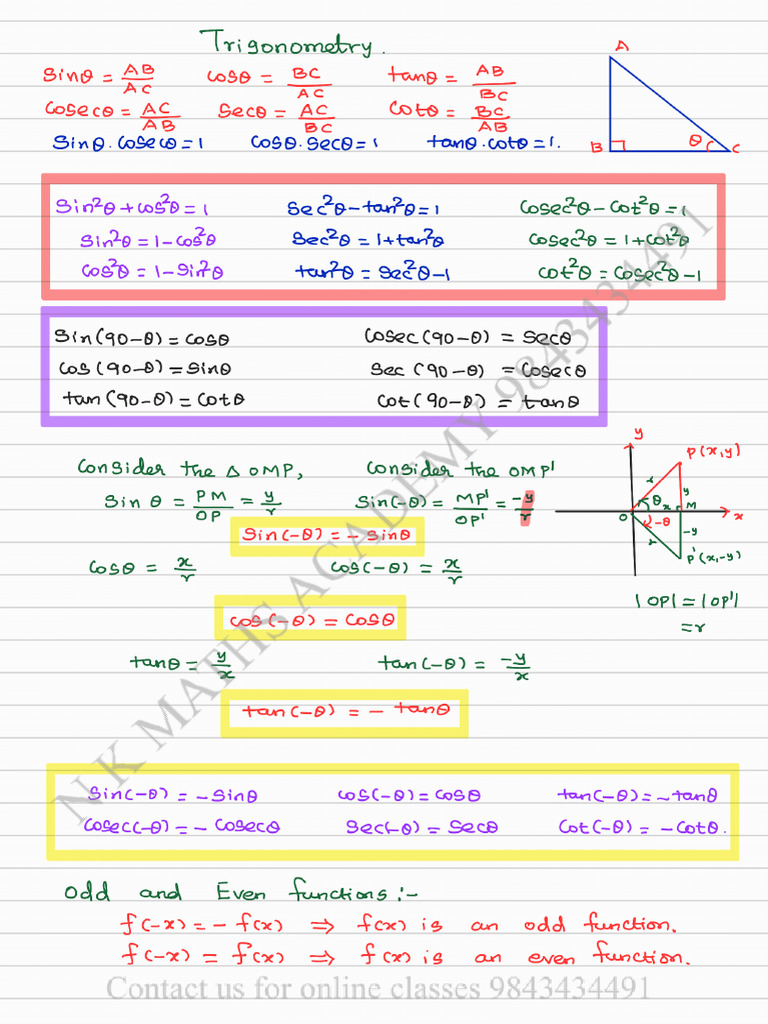 Trigonometry.
Sinθ = AB/AC    Cosθ = BC/AC    tanθ = AB/BC
Cosecθ = AC/AB    Secθ = AC/BC    Cotθ = BC/AB
Sinθ.Cosecθ=1    Cosθ.Secθ=1    tanθ.cotθ=1.
A
B    θ    C
Sin²θ+cos²θ=1    Sec²θ-tan²θ=1    Cosec²θ-Cot²θ=1
Sin²θ=1-cos²θ    Sec²θ=1+tan²θ    Cosec²θ=1+Cot²θ
Cos²θ=1-Sin²θ    tan²θ=Sec²θ-1    Cot²θ=Cosec²θ-1
Sin(90-θ)=Cosθ    Cosec(90-θ)=Secθ
Cos(90-θ)=Sinθ    Sec(90-θ)=Cosecθ
tan(90-θ)=Cotθ    Cot(90-θ)=tanθ
Consider the Δ OMP,    Consider the OMP'
Sin θ = PM/OP = y/r    Sin(-θ) = MP'/OP' = -y/r
Sin(-θ) = - Sinθ
Cosθ = x/r    Cos(-θ) = x/r
Cos(-θ) = Cosθ
tanθ = y/x    tan(-θ) = -y/x
tan(-θ) = - tanθ
y
P(x,y)
r    y
θ    x    M
O    -θ    x
r    -y
P'(x,-y)
|OP| = |OP'|
=r
Sin(-θ) = -Sinθ    Cos(-θ)=Cosθ    tan(-θ)=-tanθ
Cosec(-θ)=- Cosecθ    Sec(-θ)=Secθ    Cot(-θ)=-Cotθ.
Odd and Even functions:-
f(-x)=- f(x) ⇒ f(x) is an odd function.
f(-x) = f(x) ⇒ f(x) is an even function.
N K MATHS ACADEMY 9843434491
Contact us for online classes 9843434491